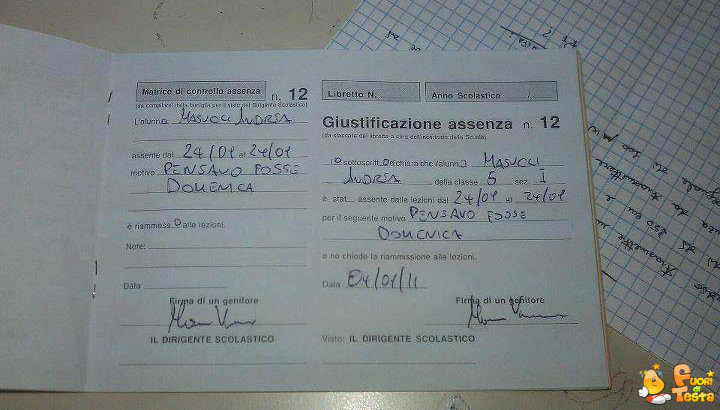 Matrice di controllo assenza n. 12
(da compilarsi dalla famiglia per il visto del Dirigente Scolastico)
L'alunno MASUCCI ANDREA
assente dal 24/01 al 24/01
motivo PENSAVO FOSSE
DOMENICA
è riammesso alle lezioni.
Note:
Data
Firma di un genitore
IL DIRIGENTE SCOLASTICO
Libretto N.
Anno Scolastico /
Giustificazione assenza n. 12
(da staccare dal libretto a cura dell'incaricato della Scuola)
Io sottoscritto dichiara che l'alunno MASUCCI
ANDREA della classe 5 sez. I
è stat assente dalle lezioni dal 24/01 al 24/01
per il seguente motivo PENSAVO FOSSE
DOMENICA
e ne chiede la riammissione alle lezioni.
Data 04/01/11
Firma di un genitore
Visto: IL DIRIGENTE SCOLASTICO
Fuori di Testa